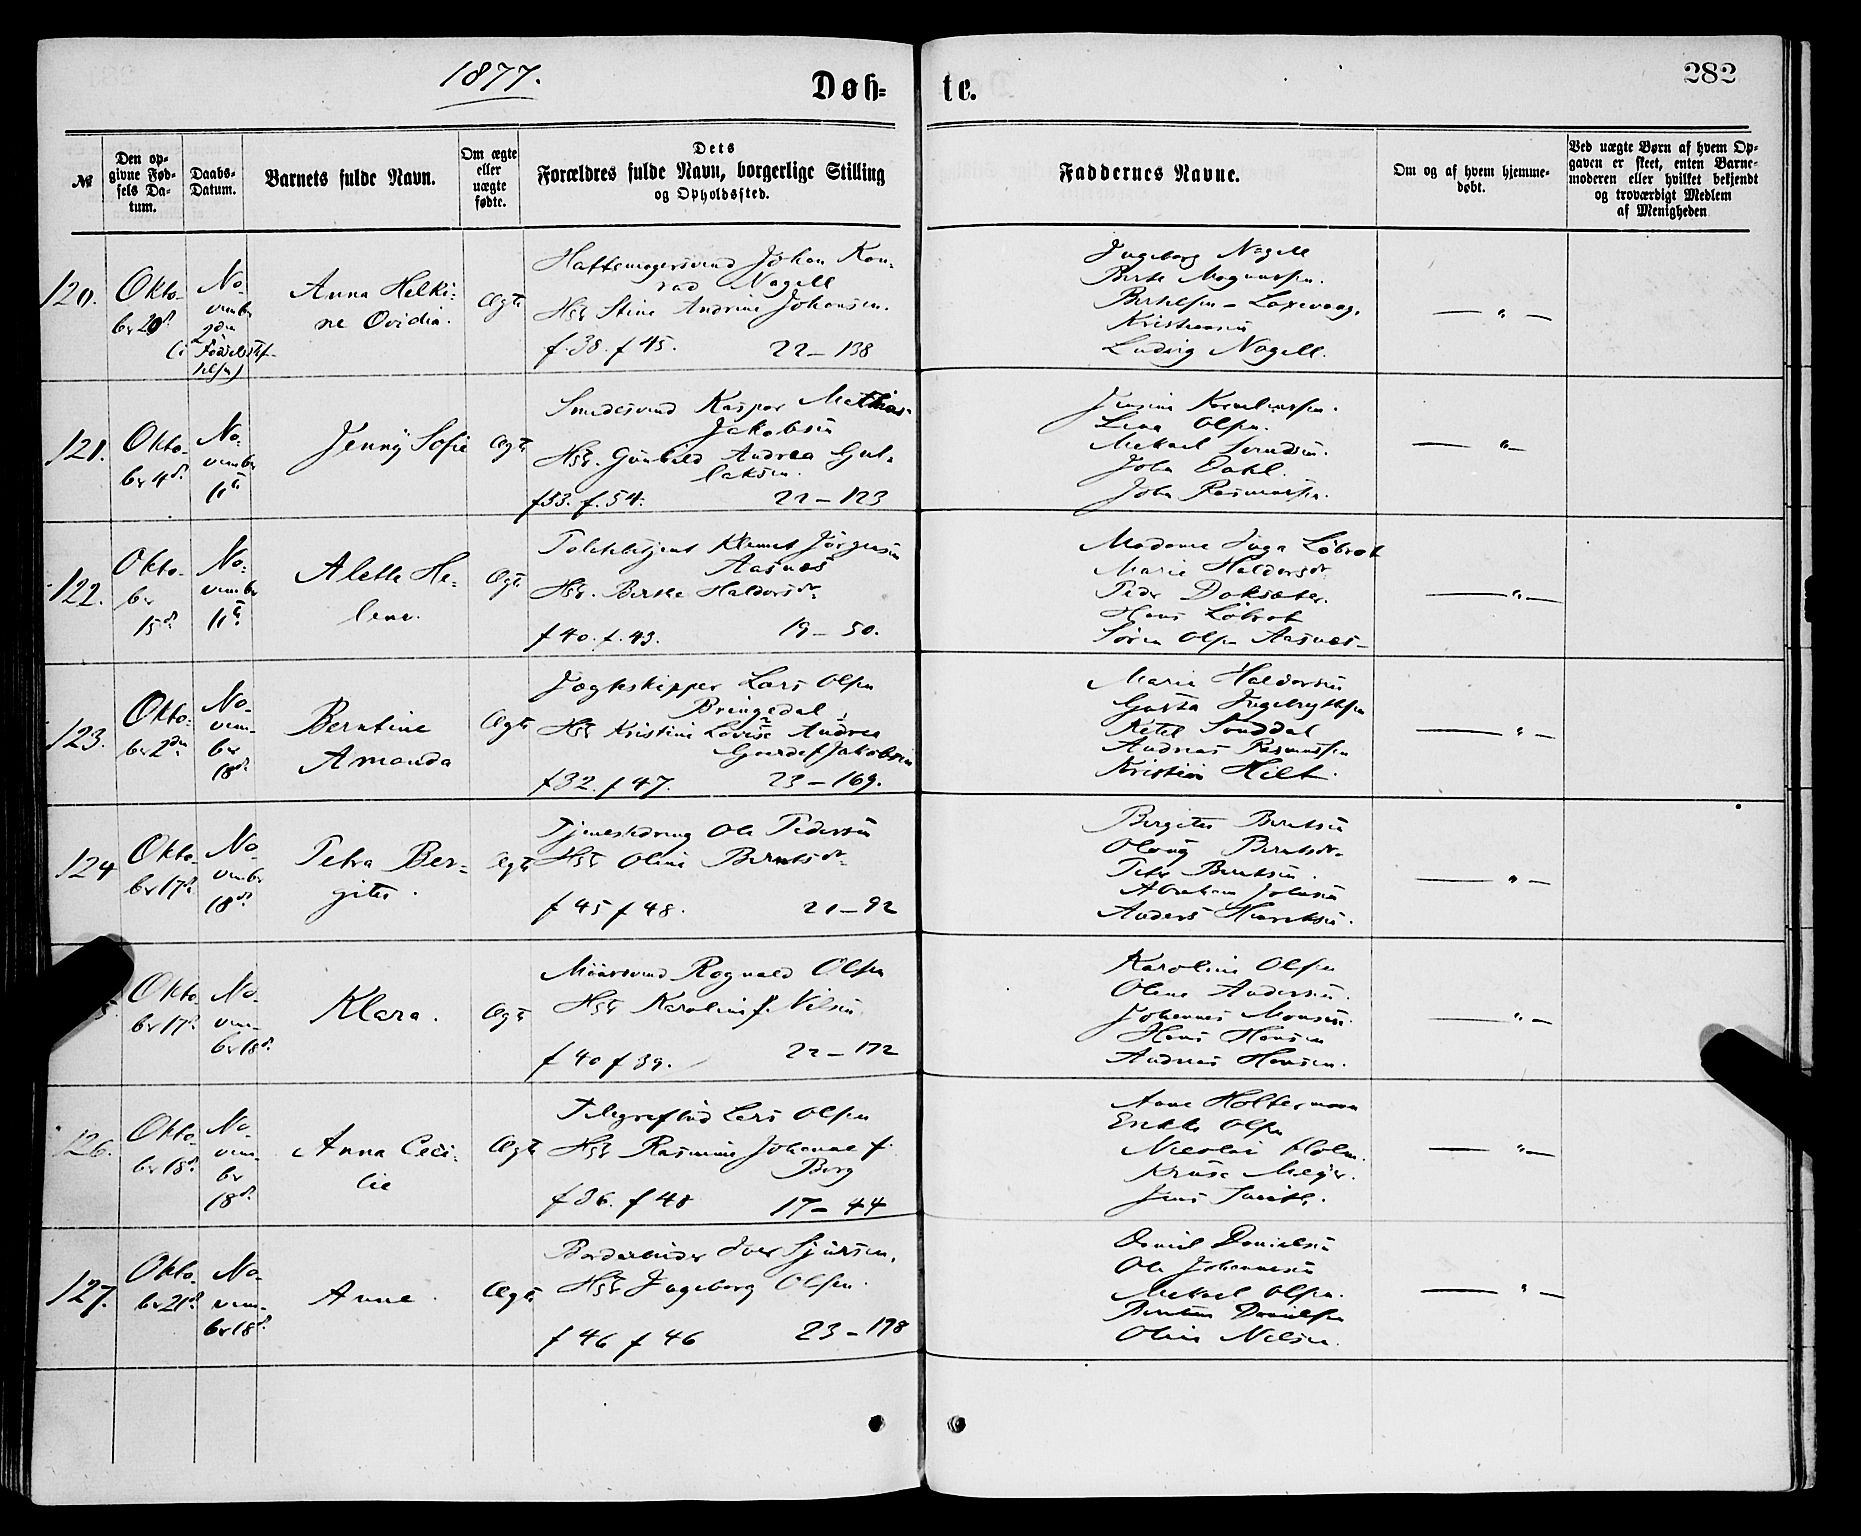 1877.
Døb-
te.
282
№
Den op-
givne Fød-
sels Da-
tum.
Daabs-
Datum.
Barnets fulde Navn.
Om ægte
eller
uægte
fødte.
Dets
Forældres fulde Navn, borgerlige Stilling
og Opholdssted.
Faddernes Navne.
Om og af hvem hjemme-
døbt.
Ved uægte Børn af hvem Op-
gaven er skeet, enten Barne-
moderen eller hvilket bekjendt
og troværdigt Medlem
af Menigheden
120.
Okto-
ber
No-
vember
2den
Anna Helki-
ne Ovidia.
Ægte
Hattemagersvend Johan Kon-
rad Nagell
Hst Stine Andrine Johansen.
f. 38. f 45.
22 - 138
Ingeborg Nagell
Berte Magnussen.
Bertelsen - Laxevaag.
Kristensen
Ludvig Nagell.
— " —
121.
Okto-
ber 4d.
No-
vember
11te
Jenny Sofie
Ægte
Smedesvend Kasper Mathias
Jakobsen
Hst. Gunhild Andrea Gul-
laksen.
f33. f. 54.
22 - 123
Jensine Korneliussen.
Lina Olsen.
Mikael
John Dahl.
John Rasmussen.
— " —
122.
Okto-
ber
15d.
No-
vember
11te
Alette He-
lene.
Ægte
Klemet Jørgensen
Aasnæs
Hst. Berthe Haldorsdr.
f 40. f. 43.
19 - 50.
Madame Inga Løbrot
Marie Haldorsdr.
Peder
Hans Løbrot
Søren Olsen Aasnæs -
— " —
123.
Okto-
ber 2den
No-
vem-
ber
18d.
Berntine
Amanda
Ægte
Jægteskipper Lars Olsen
Bringedal,
Hst Kristine Lovise Andrea
Jakobsen
f32. f 47.
23 - 169.
Marie Haldorsen
Gusta Ingebrigtsen
Ketel
Andreas Rasmussen
Kristian Hilt.
— " —
124
Okto-
ber 17d.
No-
vember
18d.
Petra Ber-
gite.
Ægte
Tjenestedreng Ole Pedersen
Hst Oline Berntsdr.
f 45 f 48.
21 - 92
Bergite Berntsen
Berntsdr.
Peter Berntsen.
Abraham Johnsen
Anders
— " —
5.
Okto-
ber 17d.
No-
vem-
ber 18d.
Klara.
Ægte
Muursvend Rognald Olsen
Hst Karoline f. Nilsen.
f 40 f 39.
22 - 172
Karoline Olsen
Olena Andersen.
Johannes Monsen.
Hans Hansen
Andreas Hansen.
— " —
126.
Okto-
ber 18d.
No-
vem-
ber
18d.
Anna Ceci-
lie
Ægte
Telegrafbud Lars Olsen
Hst Rasmine Johanne f.
Berg
f 36. f 48
17 - 44
Anne Holtermann
Olsen
Nicolai Holm.
Kruse Meyer.
Jens Smith.
— " —
127.
Okto-
ber 21d.
No-
vem-
ber 18d.
Anne.
Ægte
Iver Sjursen.
Hst Ingeborg Olsen.
f 46 f 46
23 - 198
Daniel Danielsen
Ole Johannesen
Mikael Olsen.
Danielsen
Oline Nilsen.
— " —